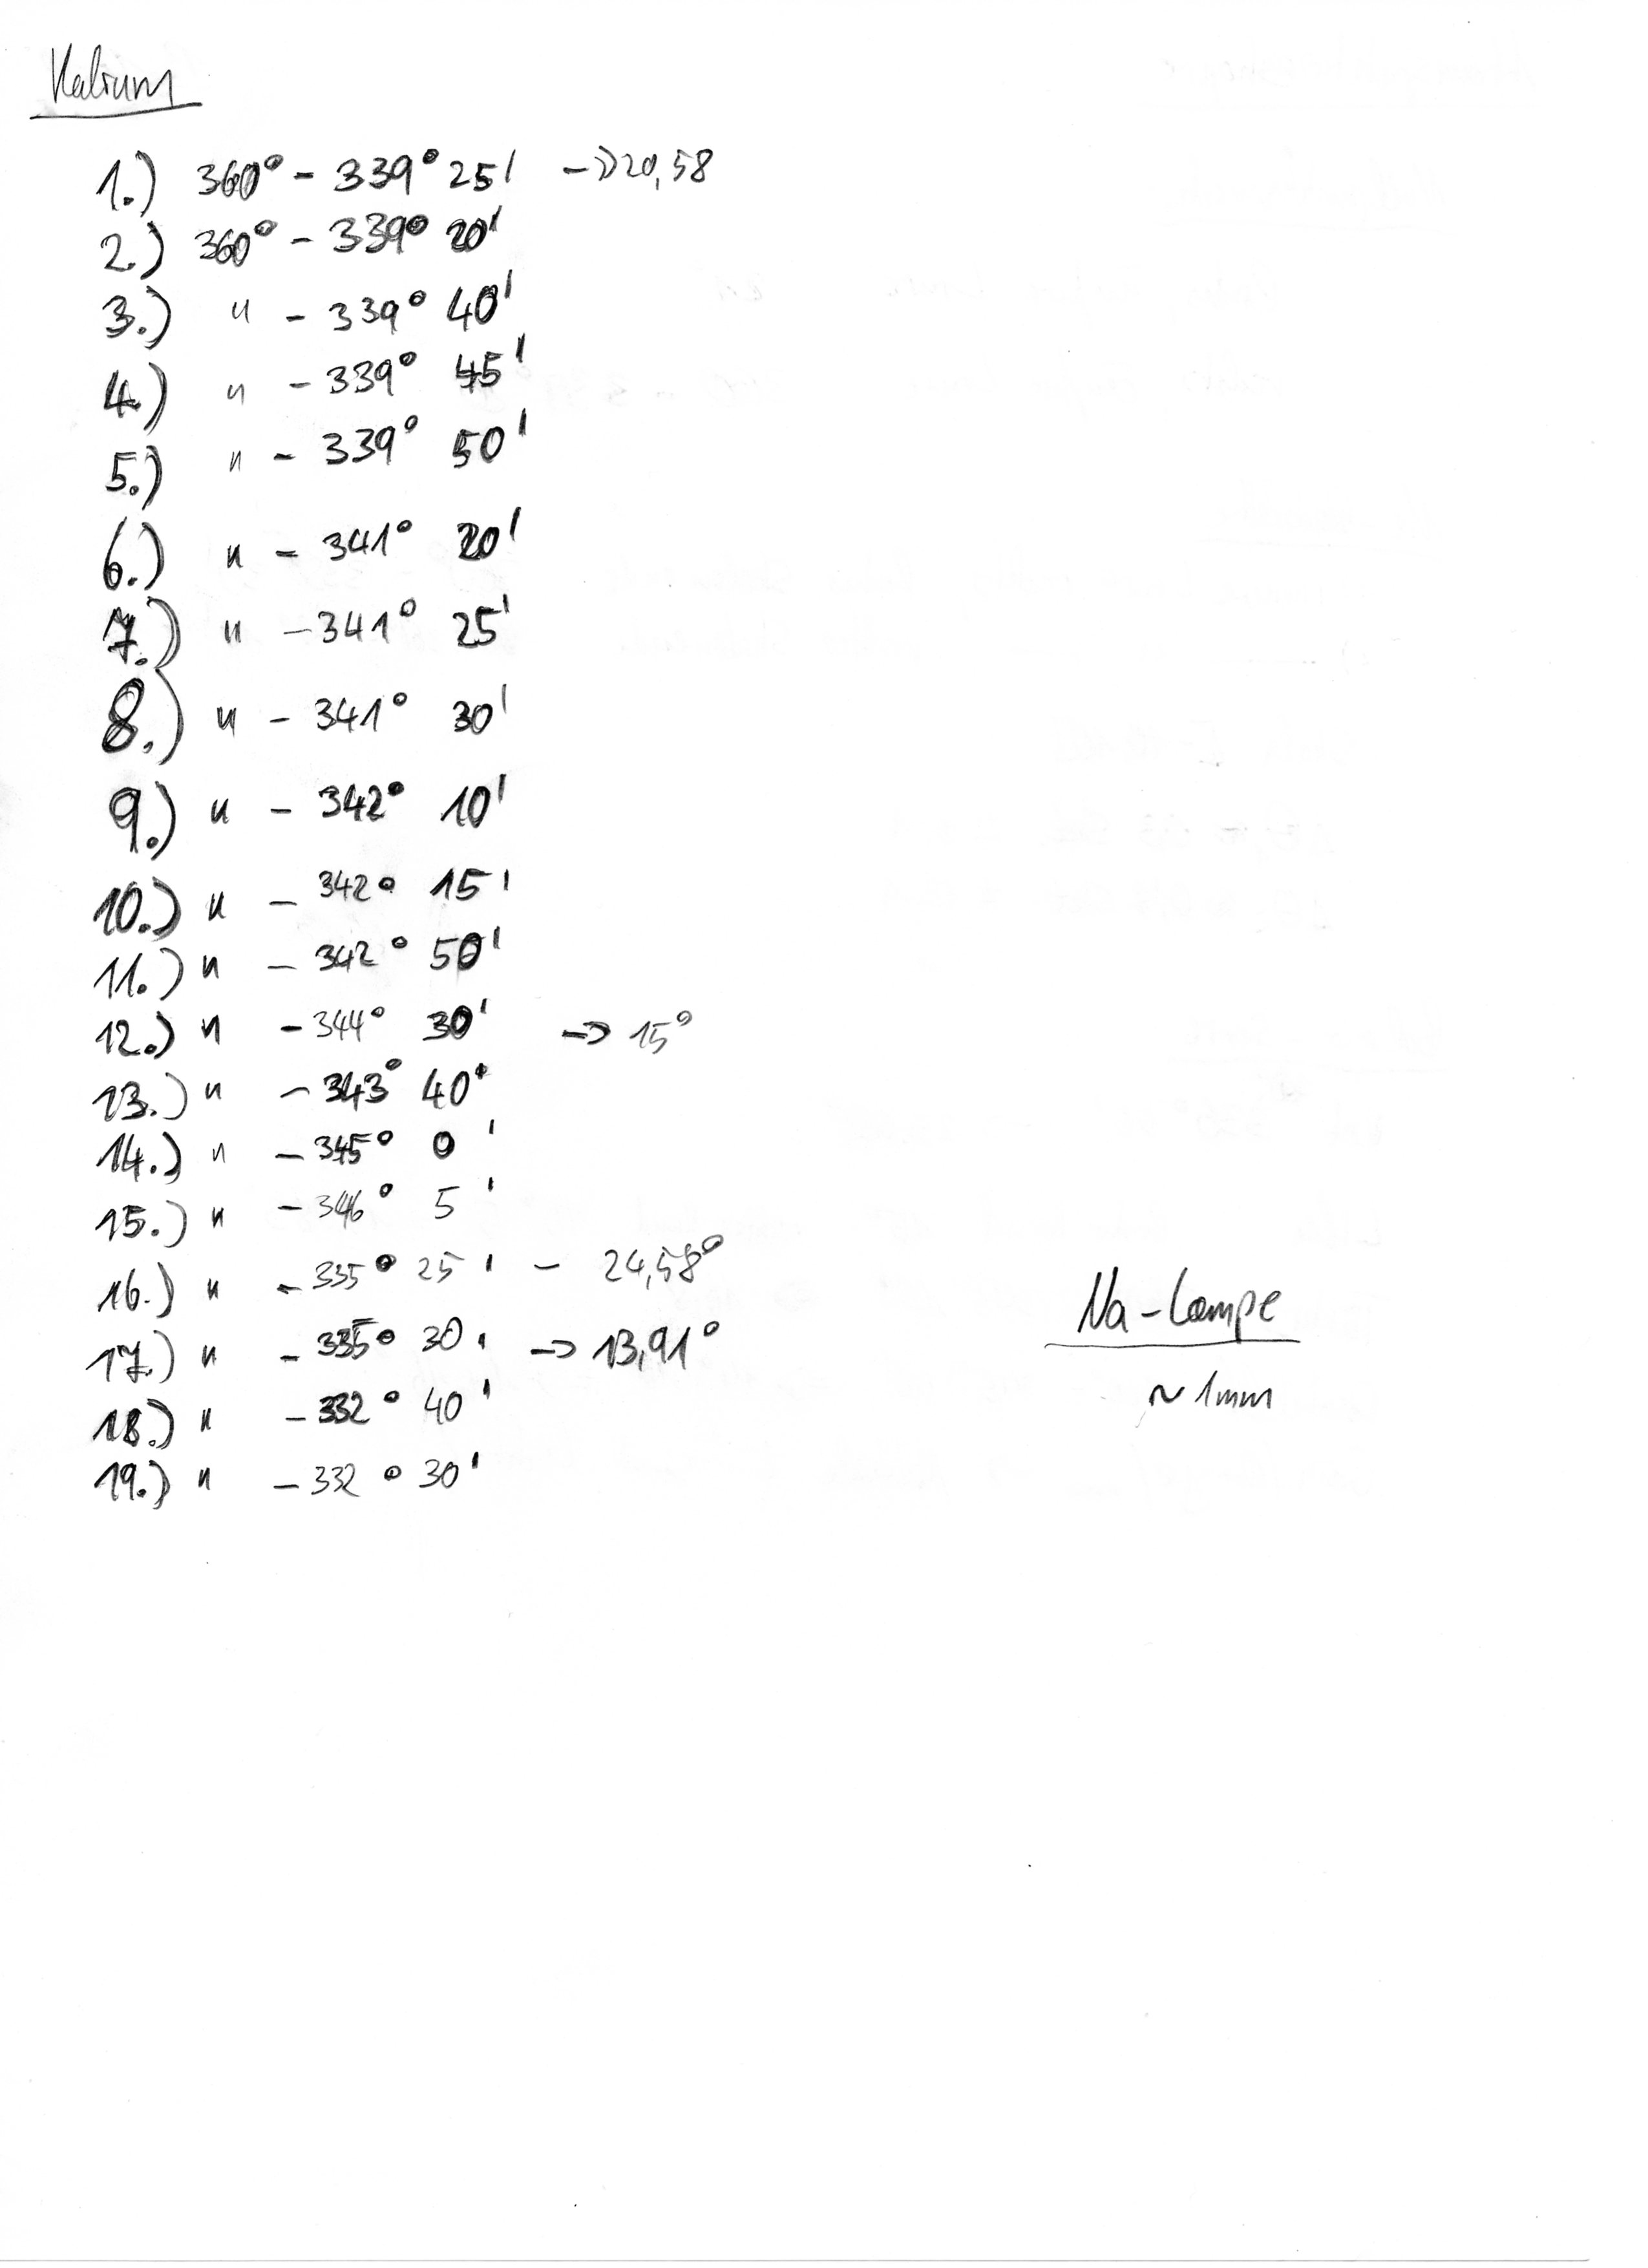 Kalium
1.) 360° - 339° 25' -> 20,58
2.) 360° - 339° 20'
3.) " - 339° 40'
4.) " - 339° 45'
5.) " - 339° 50'
6.) " - 341° 20'
7.) " - 341° 25'
8.) " - 341° 30'
9.) " - 342° 10'
10.) " - 342° 15'
11.) " - 342° 50'
12.) " - 344° 30' -> 15°
13.) " - 343° 40'
14.) " - 345° 0'
15.) " - 346° 5'
16.) " - 335° 25' - 24,58°
17.) " - 335° 30' -> 13,91°
18.) " - 332° 40'
19.) " - 332° 30'
Na-Lampe
~ 1mm